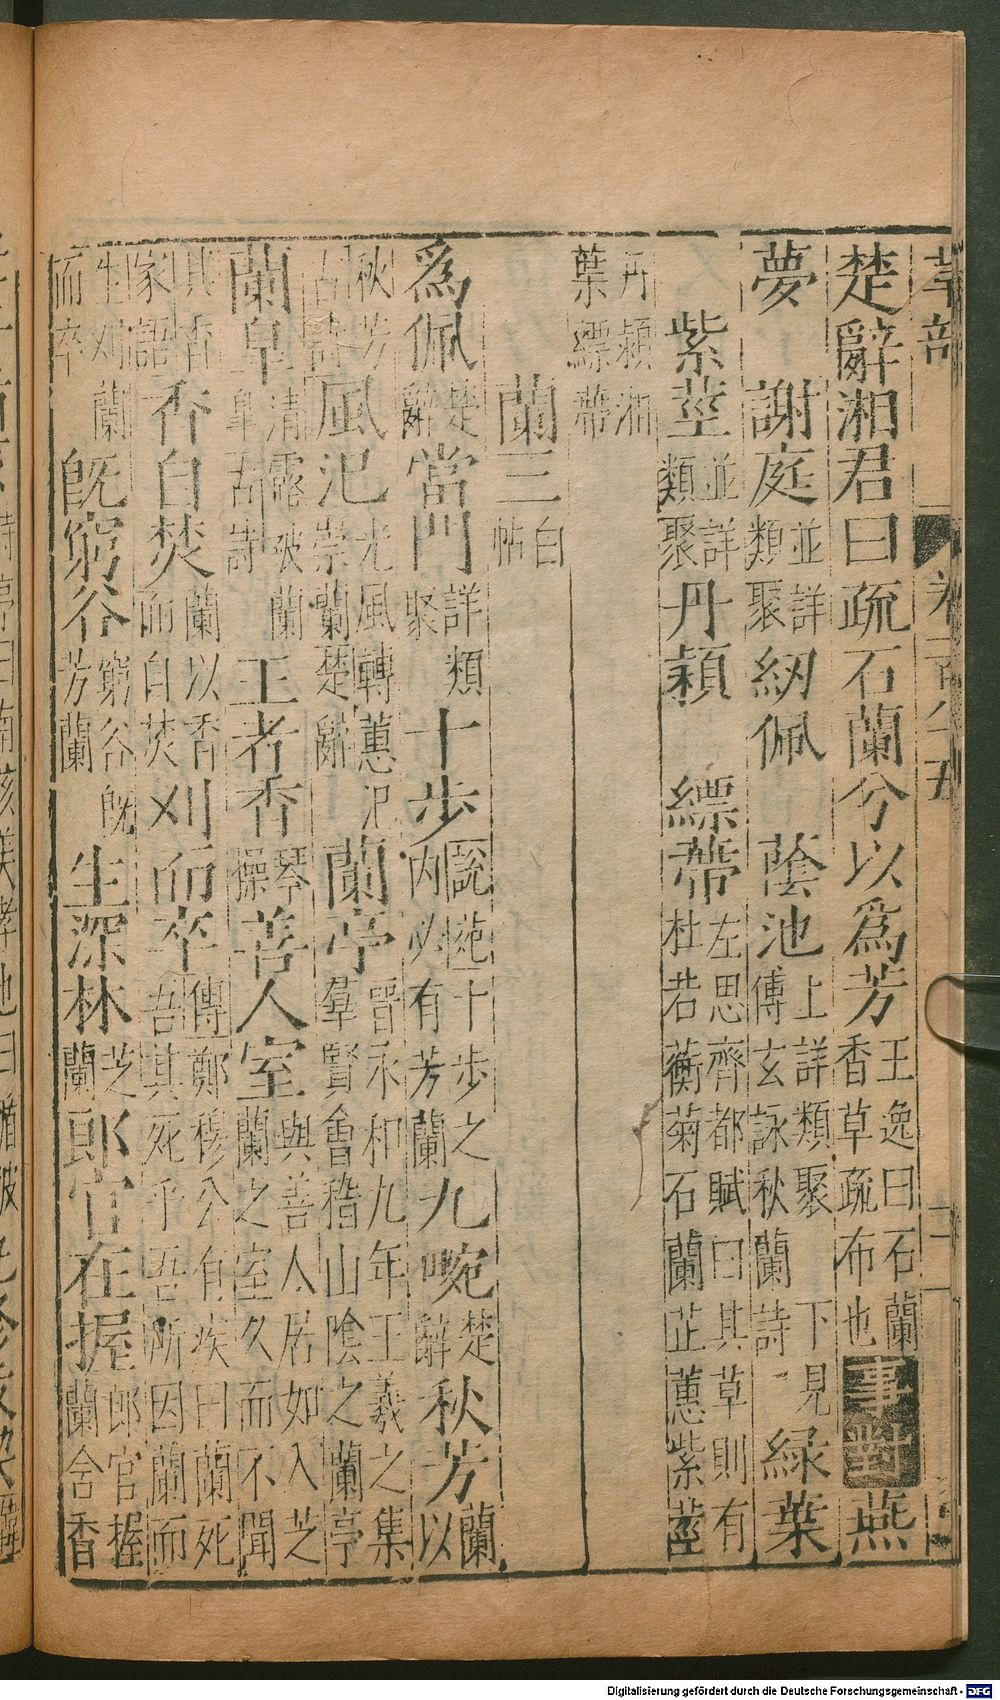 草部
卷一百八十五
楚辭湘君曰疏石蘭兮以爲芳王逸曰石蘭香草疏布也事對燕
夢 謝庭並詳類聚紉佩 蔭池上詳類聚下見傅玄詠秋蘭詩 綠葉
紫莖並詳類聚丹穎 縹蔕左思齊都賦曰其草則有杜若蘅菊石蘭芷蕙紫莖
丹穎湘葉縹蔕
蘭三白帖
爲佩楚辭當門詳類聚十步說苑十步之內必有芳蘭九畹楚辭秋芳蘭以
秋芳古詩風汜光風轉蕙汜崇蘭楚辭蘭亭晉永和九年王羲之集羣賢會稽山陰之蘭亭
蘭皐清露破蘭皐古詩王者香琴操善人室與善人居如入芝蘭之室久而不聞
其香家語香自焚蘭以香而自焚刈而卒傳鄭穆公有疾曰蘭死吾其死乎吾所因蘭而
生刈蘭而卒旣窮谷窮谷旣芳蘭生深林芝蘭郎官在握郎官握蘭舍香
Digitalisierung gefördert durch die Deutsche Forschungsgemeinschaft - DFG